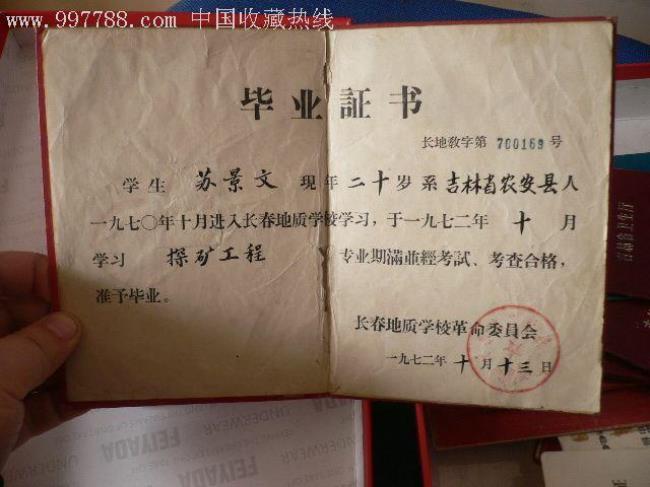 www.997788.com 中国收藏热线
毕业証书
长地教字第 700169 号
学生 苏景文 现年二十岁系吉林省农安县人
一九七〇年十月进入长春地质学校学习，于一九七二年 十 月
学习 探矿工程 专业期滿並經考試、考查合格，
准予毕业。
长春地质学校革命委員会
一九七二年 十 月 十三 日
UNDERWEAR
FEIYADA
UNDERWEAR